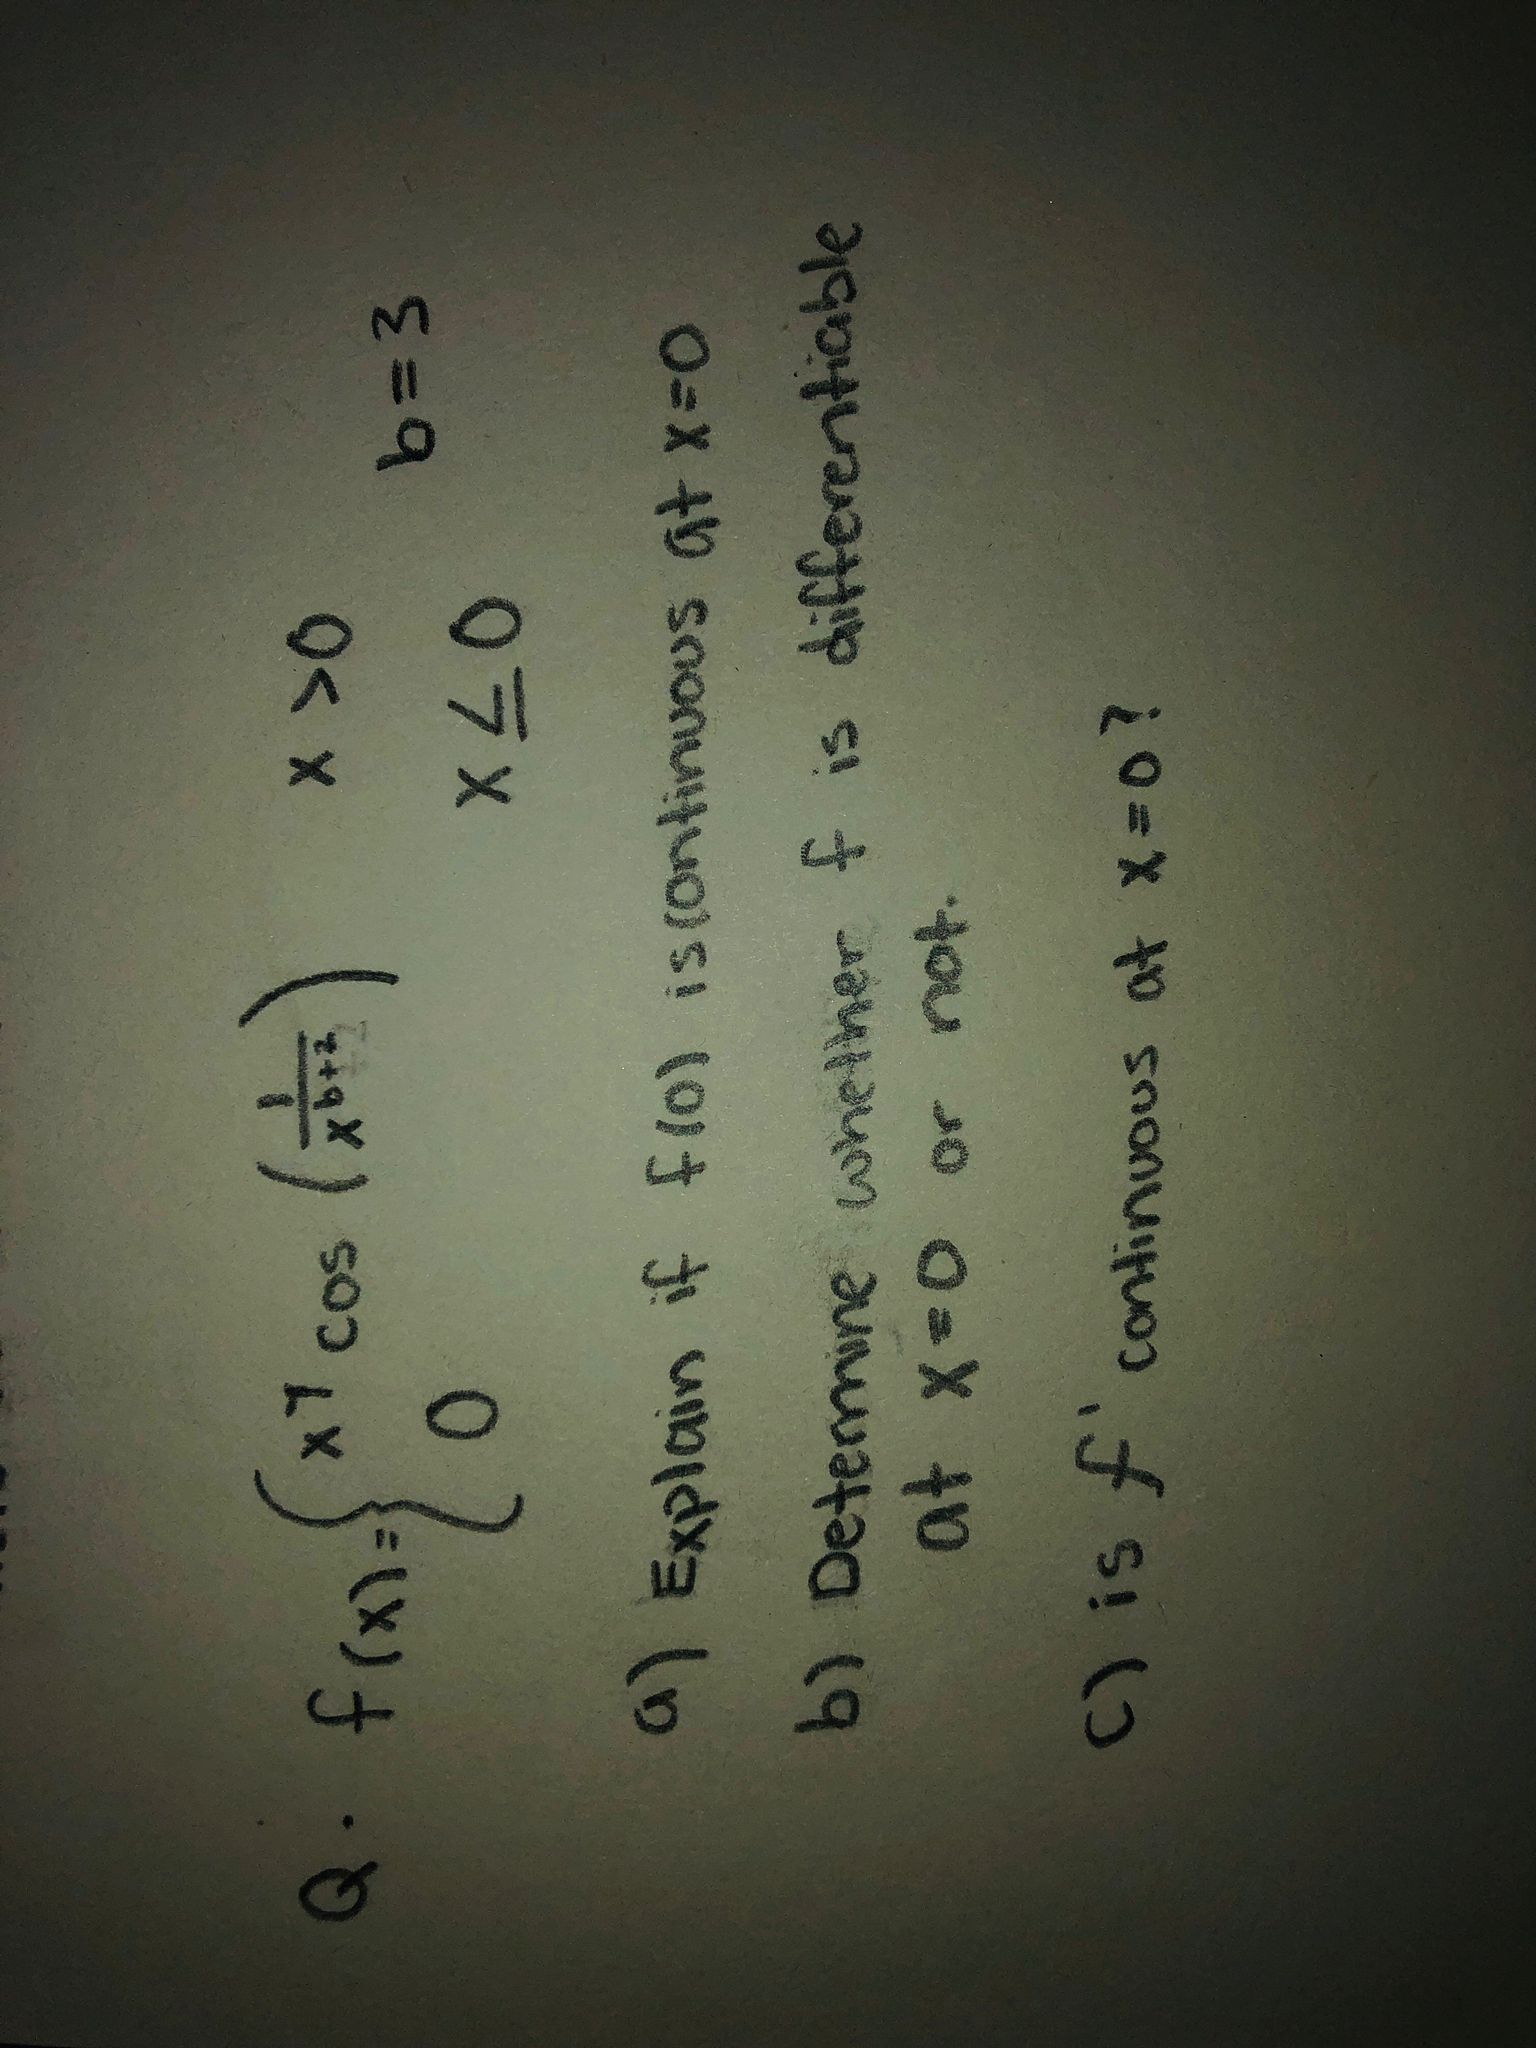 Q. f(x) = { x⁷ cos (1/x^(b+2)) x > 0
0 x ≤ 0 b = 3
a) Explain if f(0) is continuous at x=0
b) Determine whether f is differentiable
at x=0 or not.
c) is f' continuous at x=0?